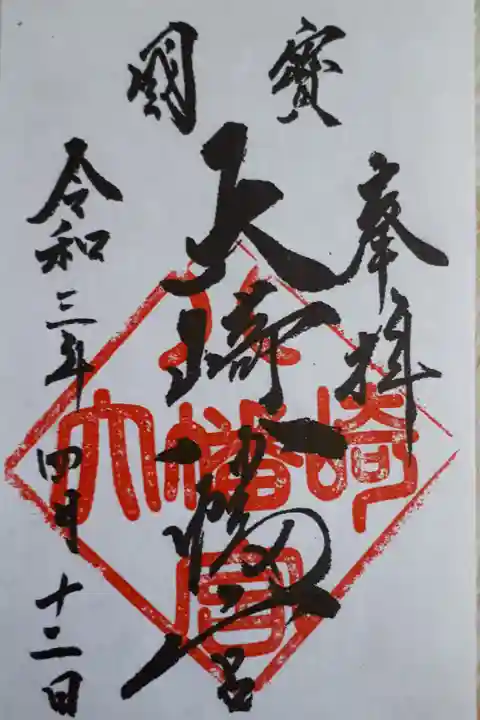 國寶
奉拝
大崎八幡宮
令和三年四月十二日
大崎八幡宮